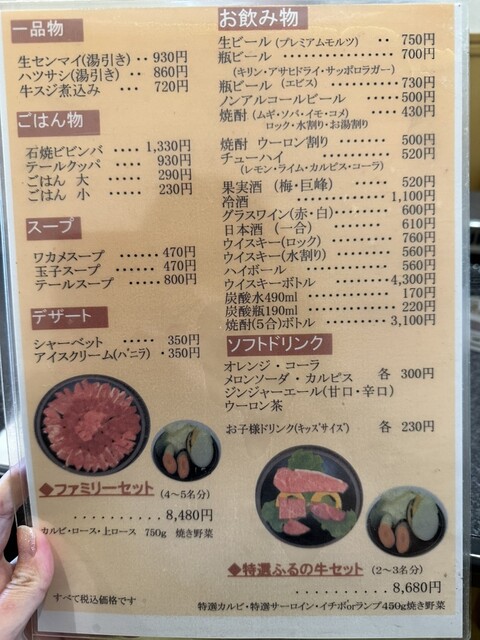 一品物
生センマイ(湯引き)‥930円
ハツサシ(湯引き)‥860円
牛スジ煮込み‥‥720円
ごはん物
石焼ビビンバ‥‥‥1,330円
テールクッパ‥‥‥930円
ごはん 大‥‥‥290円
ごはん 小‥‥‥230円
スープ
ワカメスープ‥‥‥470円
玉子スープ‥‥‥470円
テールスープ‥‥‥800円
デザート
シャーベット‥‥‥350円
アイスクリーム(バニラ)・350円
◆ファミリーセット(4~5名分)
‥‥‥‥‥8,480円
カルビ・ロース・上ロース 750g 焼き野菜
すべて税込価格です
お飲み物
生ビール(プレミアムモルツ)‥750円
瓶ビール‥‥‥‥‥700円
(キリン・アサヒドライ・サッポロラガー)
瓶ビール(エビス)‥‥‥‥730円
ノンアルコールビール‥‥‥500円
焼酎(ムギ・ソバ・イモ・コメ)‥‥430円
ロック・水割り・お湯割り
焼酎 ウーロン割り‥‥‥500円
チューハイ‥‥‥‥‥520円
(レモン・ライム・カルピス・コーラ)
果実酒(梅・巨峰)‥‥‥520円
冷酒‥‥‥‥‥1,100円
グラスワイン(赤・白)‥‥‥600円
日本酒(一合)‥‥‥‥610円
ウイスキー(ロック)‥‥‥760円
ウイスキー(水割り)‥‥‥560円
ハイボール‥‥‥‥‥560円
ウイスキーボトル‥‥‥4,300円
炭酸水490ml‥‥‥‥170円
炭酸瓶190ml‥‥‥‥220円
焼酎(5合)ボトル‥‥‥3,100円
ソフトドリンク
オレンジ・コーラ
メロンソーダ・カルピス 各 300円
ジンジャーエール(甘口・辛口)
ウーロン茶
お子様ドリンク(キッズサイズ) 各 230円
◆特選ふるの牛セット(2~3名分)
‥‥‥‥‥8,680円
特選カルビ・特選サーロイン・イチボorランプ450g焼き野菜